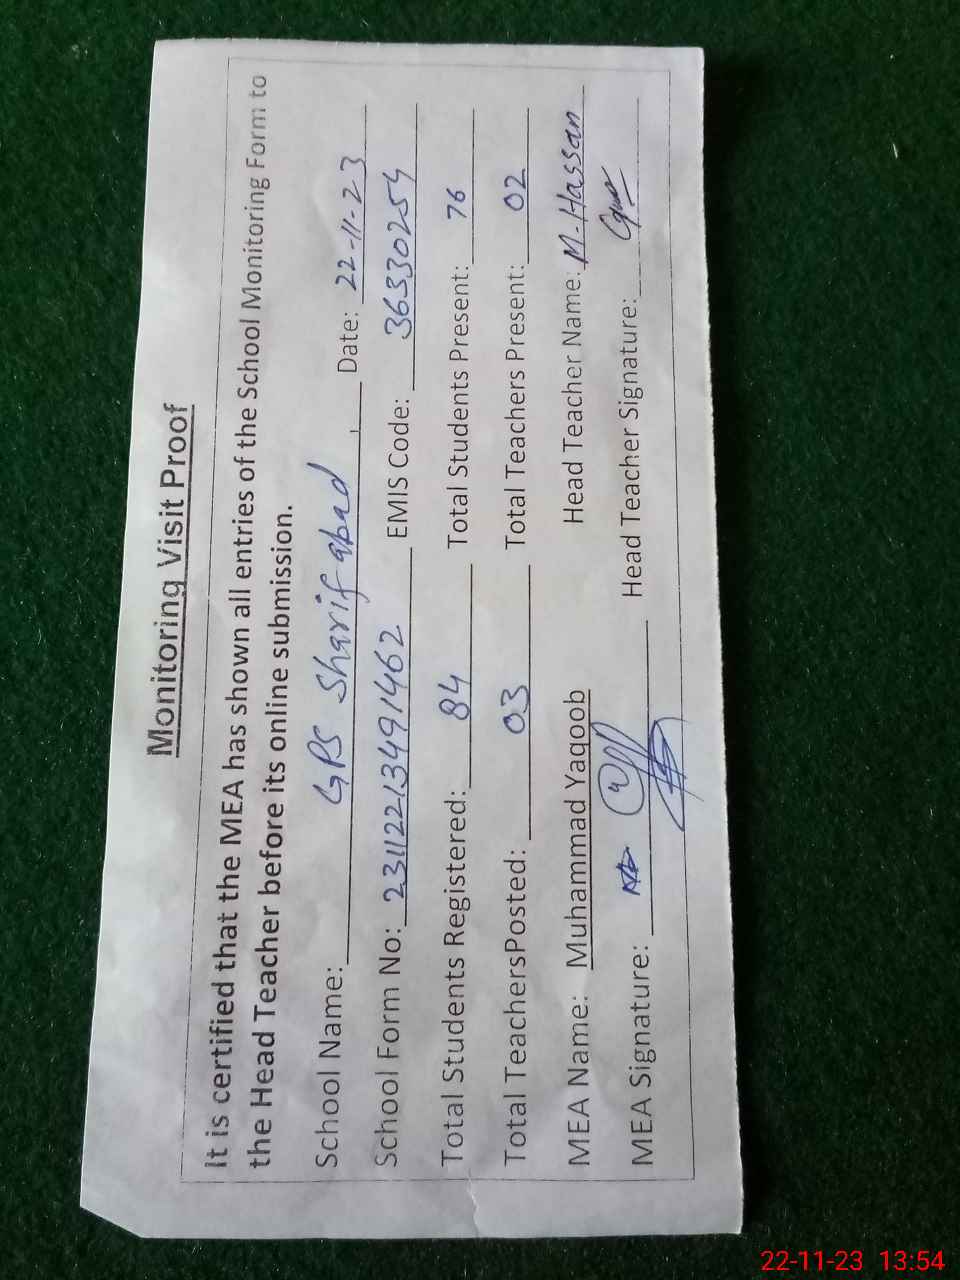 Monitoring Visit Proof
It is certified that the MEA has shown all entries of the School Monitoring Form to
the Head Teacher before its online submission.
School Name: GPS Sharif abad, Date: 22-11-23
School Form No: 231122134914 62 EMIS Code: 36330254
Total Students Registered: 84 Total Students Present: 76
Total TeachersPosted: 03 Total Teachers Present: 02
MEA Name: Muhammad Yaqoob Head Teacher Name: M. Hassan
MEA Signature: Head Teacher Signature:
22-11-23 13:54